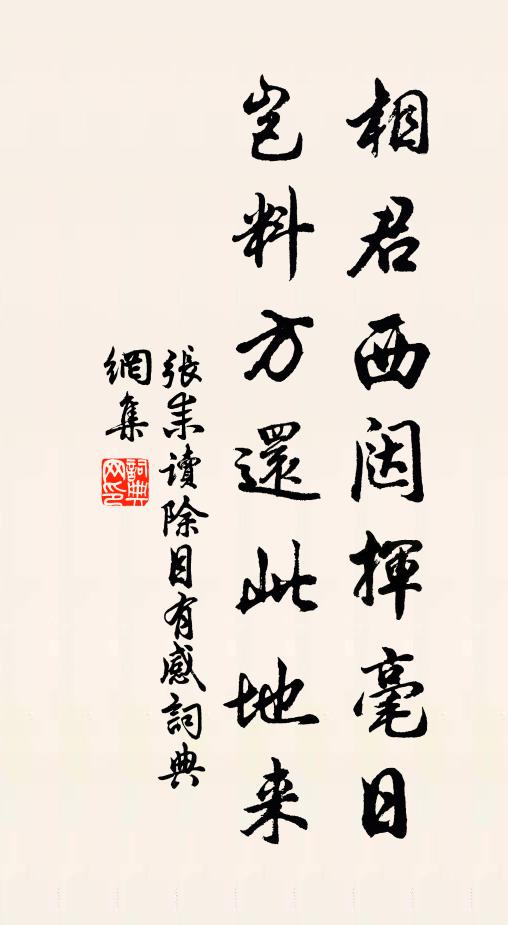 相君西閤揮毫日
豈料方還此地来
張耒讀除目有感詞典
網集
詞典
网印